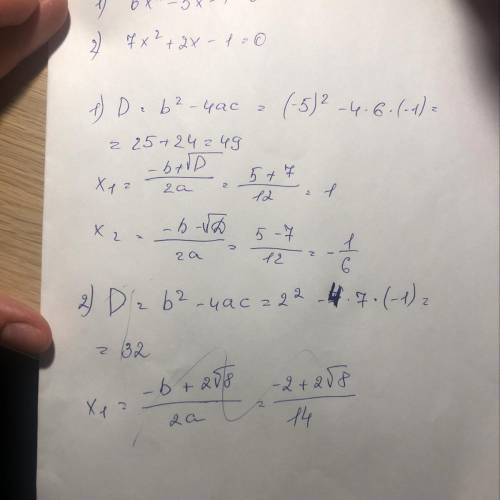 1) 6x² - 5x - 1 = 0
2) 7x² + 2x - 1 = 0
1) D = b² - 4ac = (-5)² - 4 · 6 · (-1) =
= 25 + 24 = 49
x₁ = (-b + √D)/(2a) = (5 + 7)/12 = 1
x₂ = (-b - √D)/(2a) = (5 - 7)/12 = -1/6
2) D = b² - 4ac = 2² - 4 · 7 · (-1) =
= 32
x₁ = (-b + 2√8)/(2a) = (-2 + 2√8)/14